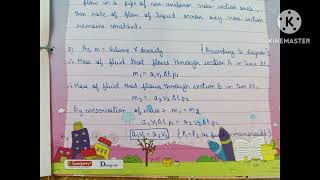 flow in a pipe of non uniform cross section area,
then rate of flow of liquid across any cross section
remains constant.
3) As m = Volume × density { According to diagram }
∴ Mass of fluid that flows through section A in time Δt
m₁ = a₁v₁Δtρ₁
∴ Mass of fluid that flows through section B in time Δt,
m₂ = a₂v₂Δtρ₂
By conservation of mass : m₁ = m₂
a₁v₁Δtρ₁ = a₂v₂Δtρ₂
∴ a₁v₁ = a₂v₂
Designer
KINEMASTER